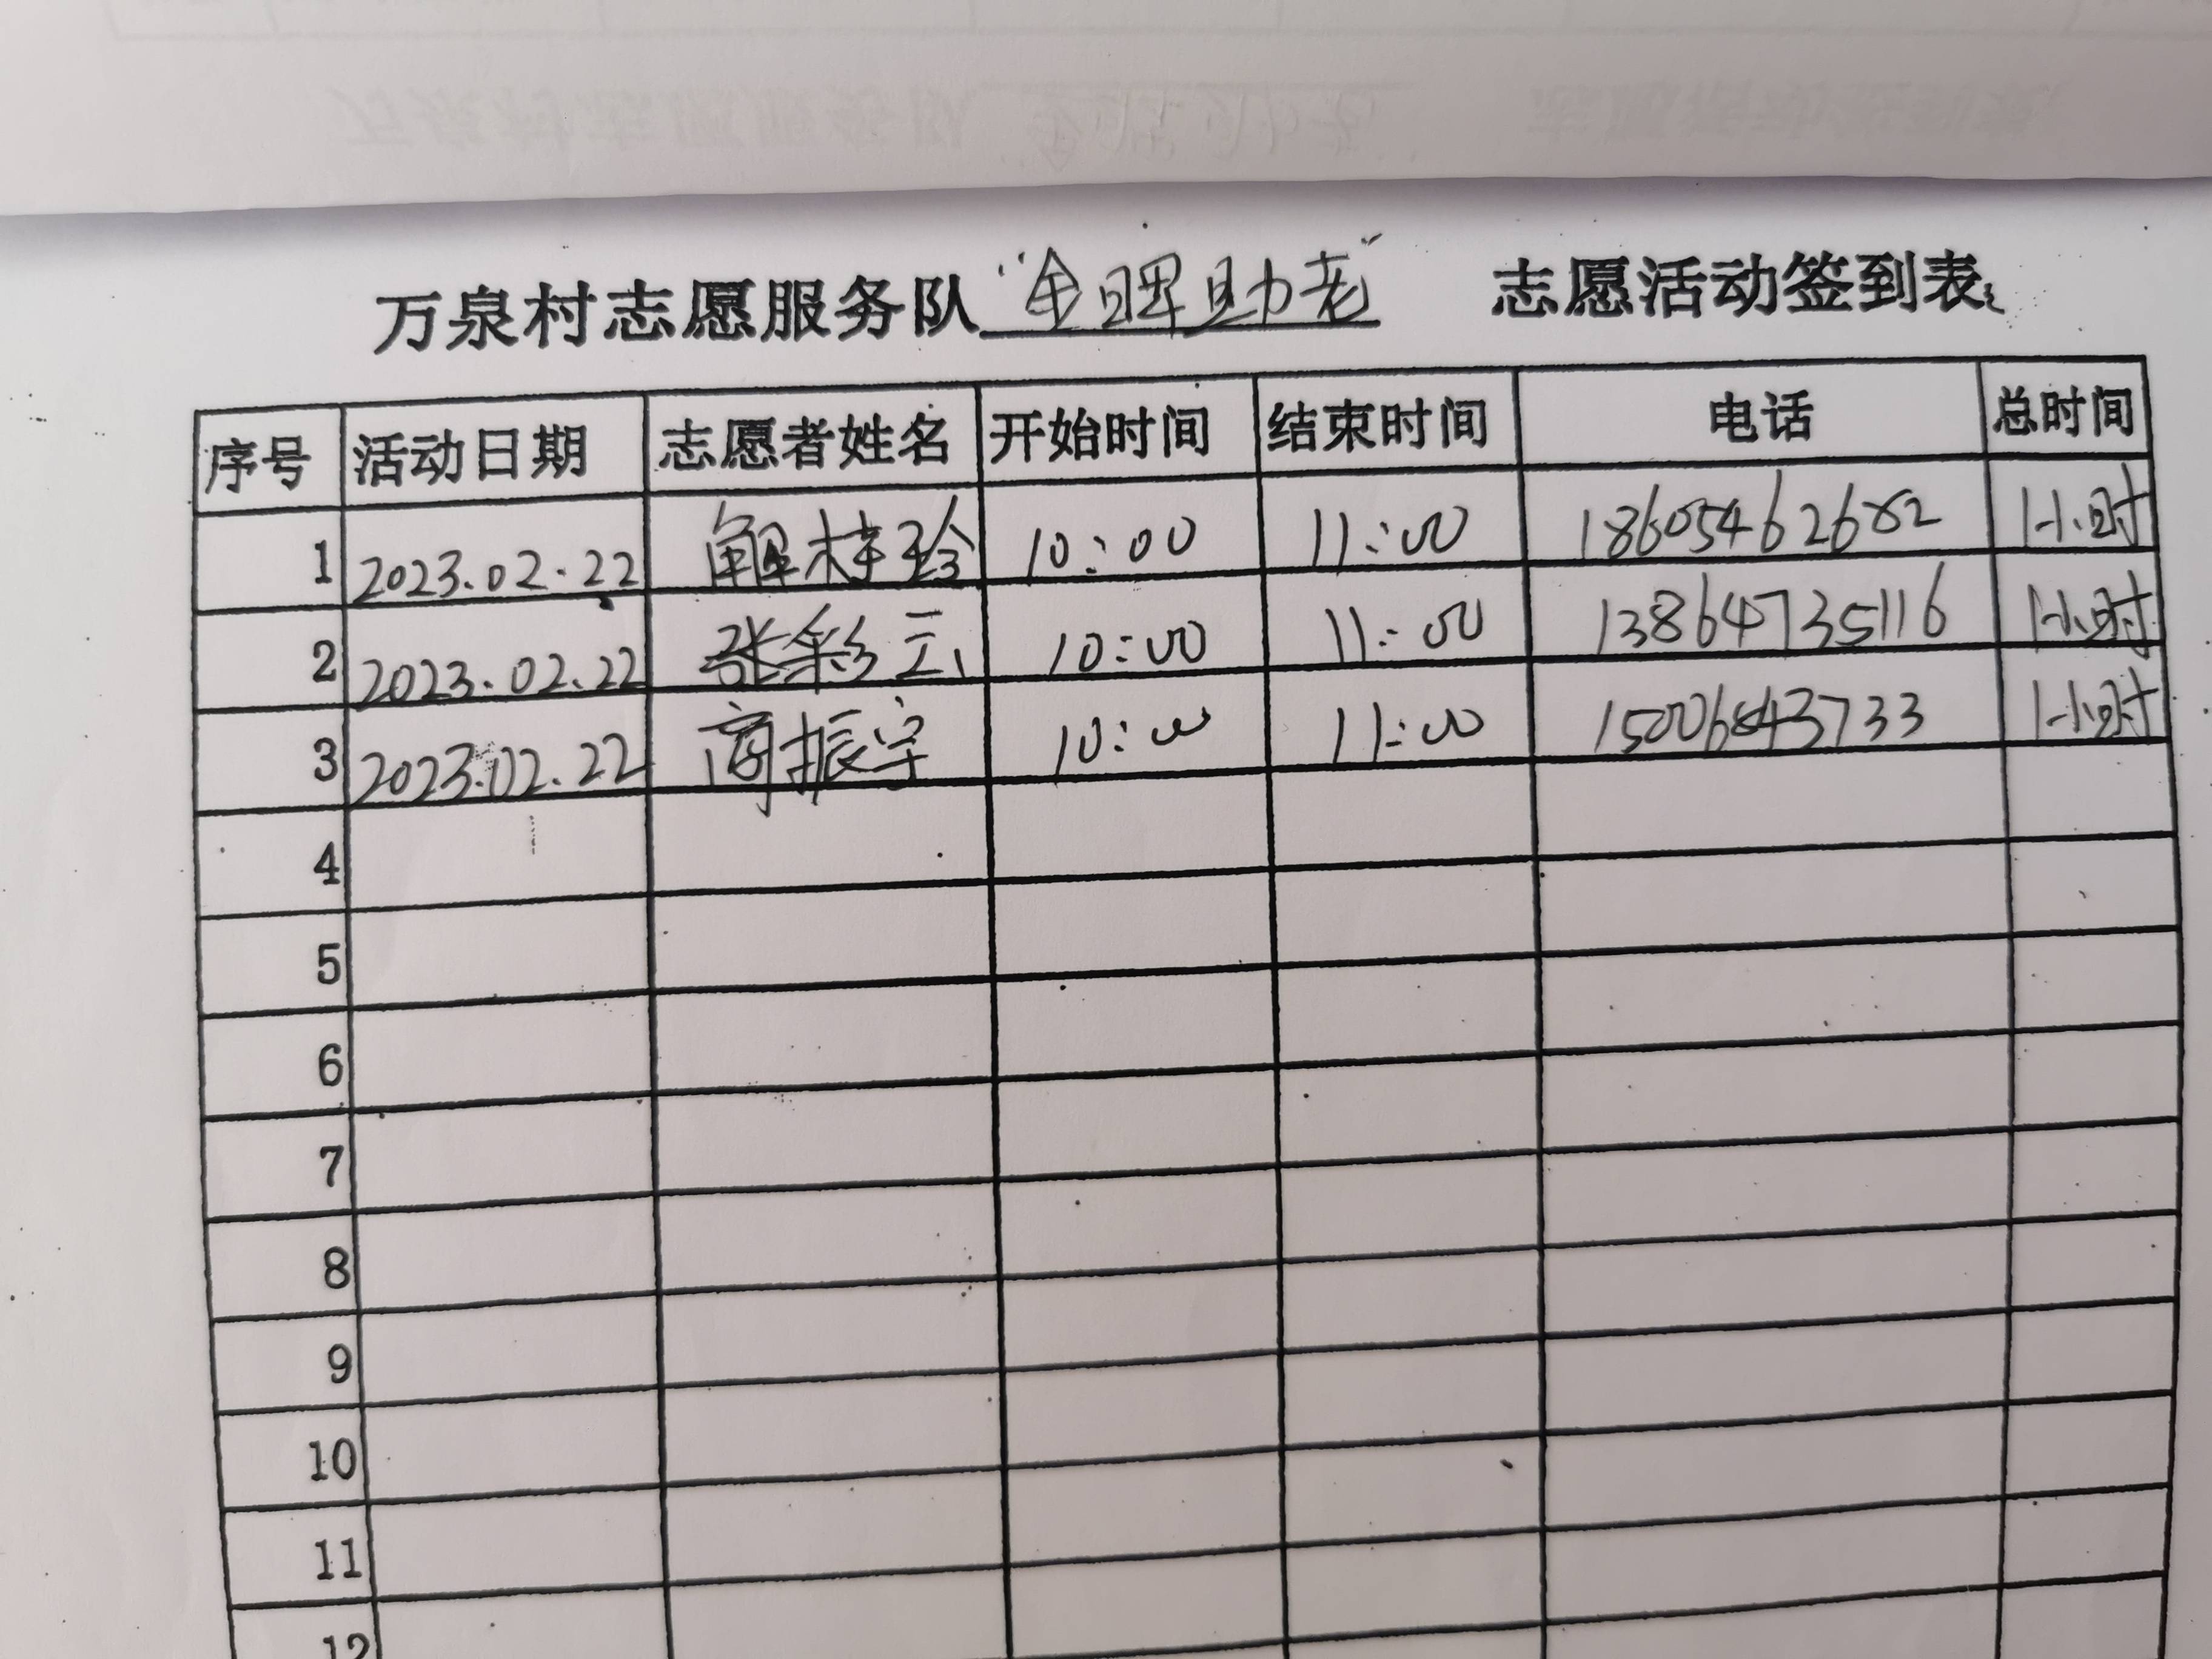 万泉村志愿服务队“金晖助老” 志愿活动签到表
序号 活动日期 志愿者姓名 开始时间 结束时间 电话 总时间
1 2023.02.22 解桂玲 10:00 11:00 18605462682 1小时
2 2023.02.22 张彩云 10:00 11:00 13864735116 1小时
3 2023.02.22 商振宇 10:00 11:00 15006843733 1小时
4
5
6
7
8
9
10
11
12